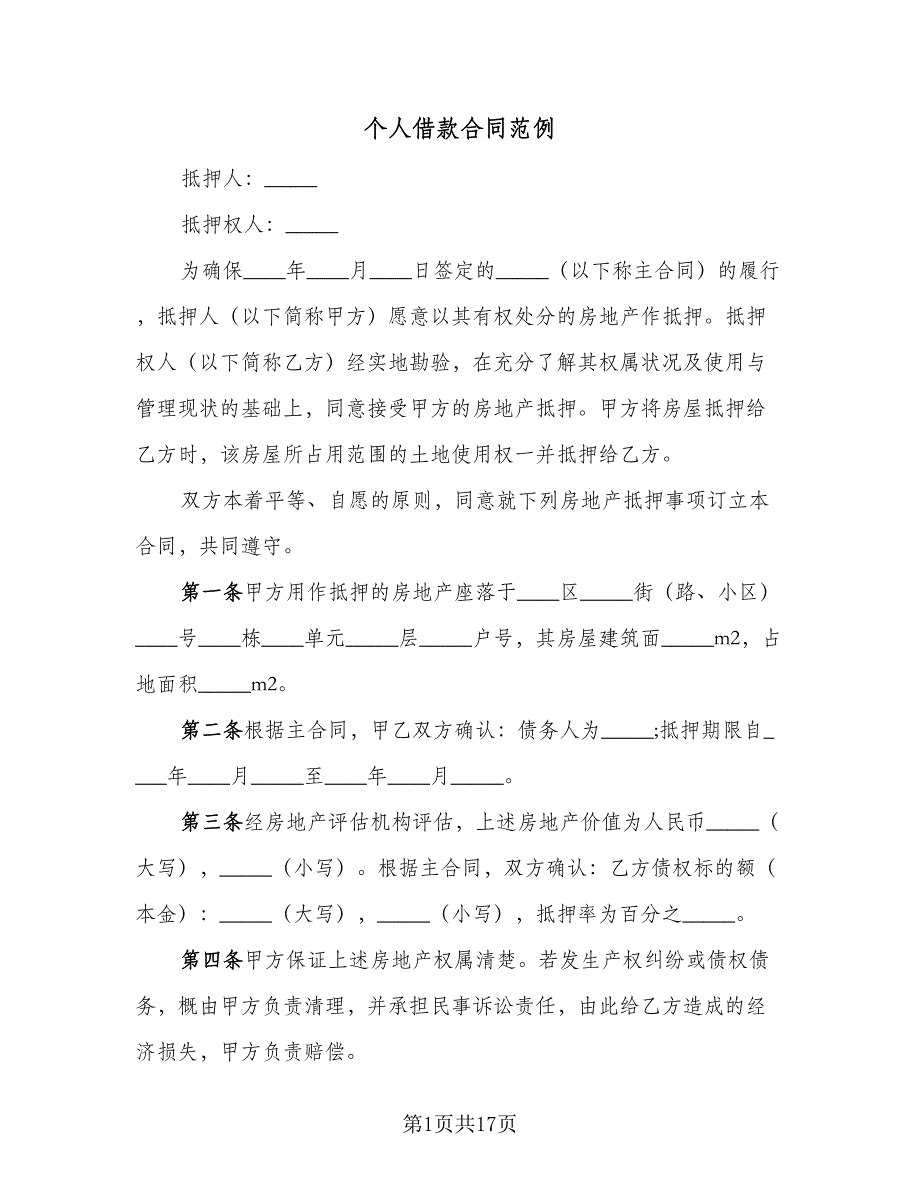 个人借款合同范例
抵押人：_____
抵押权人：_____
为确保____年____月____日签定的_____（以下称主合同）的履行
，抵押人（以下简称甲方）愿意以其有权处分的房地产作抵押。抵押
权人（以下简称乙方）经实地勘验，在充分了解其权属状况及使用与
管理现状的基础上，同意接受甲方的房地产抵押。甲方将房屋抵押给
乙方时，该房屋所占用范围的土地使用权一并抵押给乙方。
双方本着平等、自愿的原则，同意就下列房地产抵押事项订立本
合同，共同遵守。
第一条甲方用作抵押的房地产座落于____区_____街（路、小区）
____号____栋____单元_____层_____户号，其房屋建筑面_____m2，占
地面积_____m2。
第二条根据主合同，甲乙双方确认：债务人为_____;抵押期限自_
___年____月_____至____年____月_____。
第三条经房地产评估机构评估，上述房地产价值为人民币_____（
大写），_____（小写）。根据主合同，双方确认：乙方债权标的额（
本金）：_____（大写），_____（小写），抵押率为百分之_____。
第四条甲方保证上述房地产权属清楚。若发生产权纠纷或债权债
务，概由甲方负责清理，并承担民事诉讼责任，由此给乙方造成的经
济损失，甲方负责赔偿。
第1页共17页